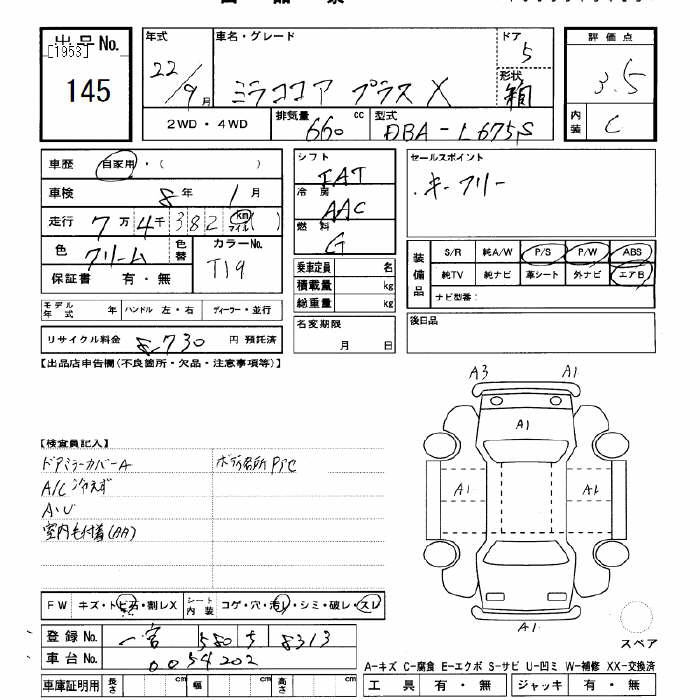 出品No.
[1953]
145
年式
22/9月
車名・グレード
ミラココア プラス X
ドア
5
形状
箱
評価点
3.5
内装
C
2WD・4WD
排気量
660 cc
型式
DBA-L675S
車歴
自家用・( )
車検
8年 1月
走行
7万4千382km マイル( )
色
クリーム
色替
カラーNo.
T19
保証書
有・無
モデル年式
年
ハンドル 左・右
ディーラー・並行
リサイクル料金
8,730円 預託済
シフト
FAT
冷房
AAC
燃料
G
乗車定員
名
積載量
kg
総重量
kg
名変期限
月 日
セールスポイント
・キーフリー
装備品
S/R 純A/W P/S P/W ABS
純TV 純ナビ 革シート 外ナビ エアB
ナビ型番:
後日品
【出品店申告欄(不良箇所・欠品・注意事項等)】
【検査員記入】
ドアミラーカバーA
A/C 冷えず
A・U
室内毛付着(AA)
ボデ各所P/C
A3
A1
A1
A1
A1
A1
スペア
FW キズ・トビ石・割レX
シート内装 コゲ・穴・汚レ・シミ・破レ・スレ
登録No.
580 8313
車台No.
0054202
車庫証明用
長さ cm 幅 cm 高さ cm
A-キズ C-腐食 E-エクボ S-サビ U-凹ミ W-補修 XX-交換済
工具 有・無 ジャッキ 有・無